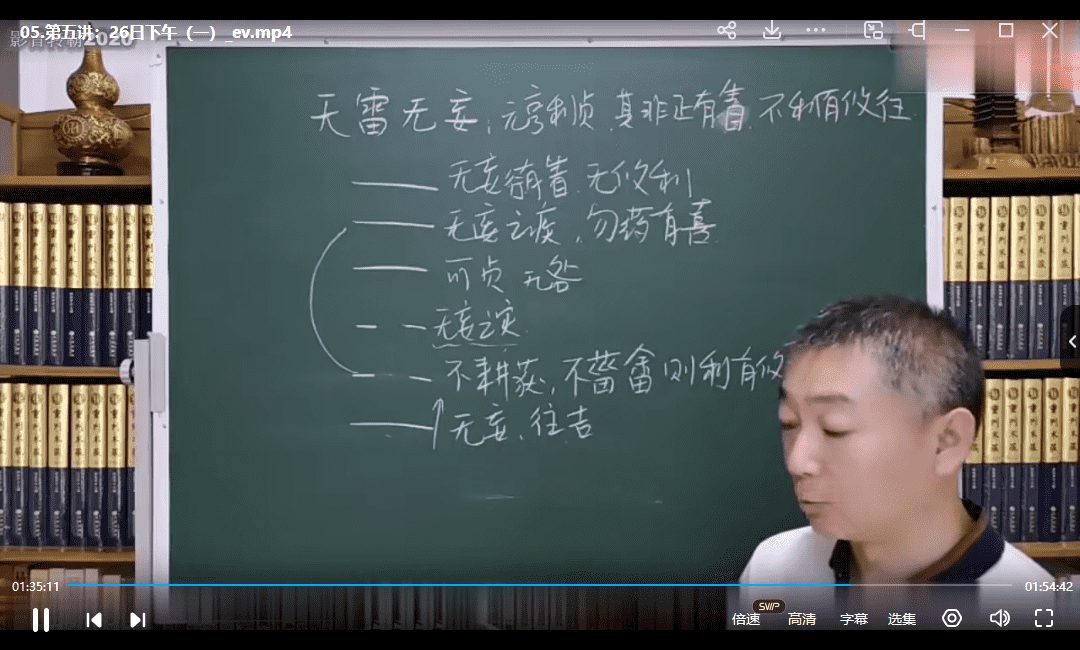 05.第五讲：26日下午（一）_ev.mp4
天雷无妄，元亨利贞，其非正有眚，不利有攸往
无妄行有眚，无攸利
无妄之疾，勿药有喜
可贞 无咎
无妄之灾
不耕获，不菑畬 则利有攸
无妄，往吉
重刊术藏
01:35:11
01:54:42
倍速
SVIP
高清
字幕
选集